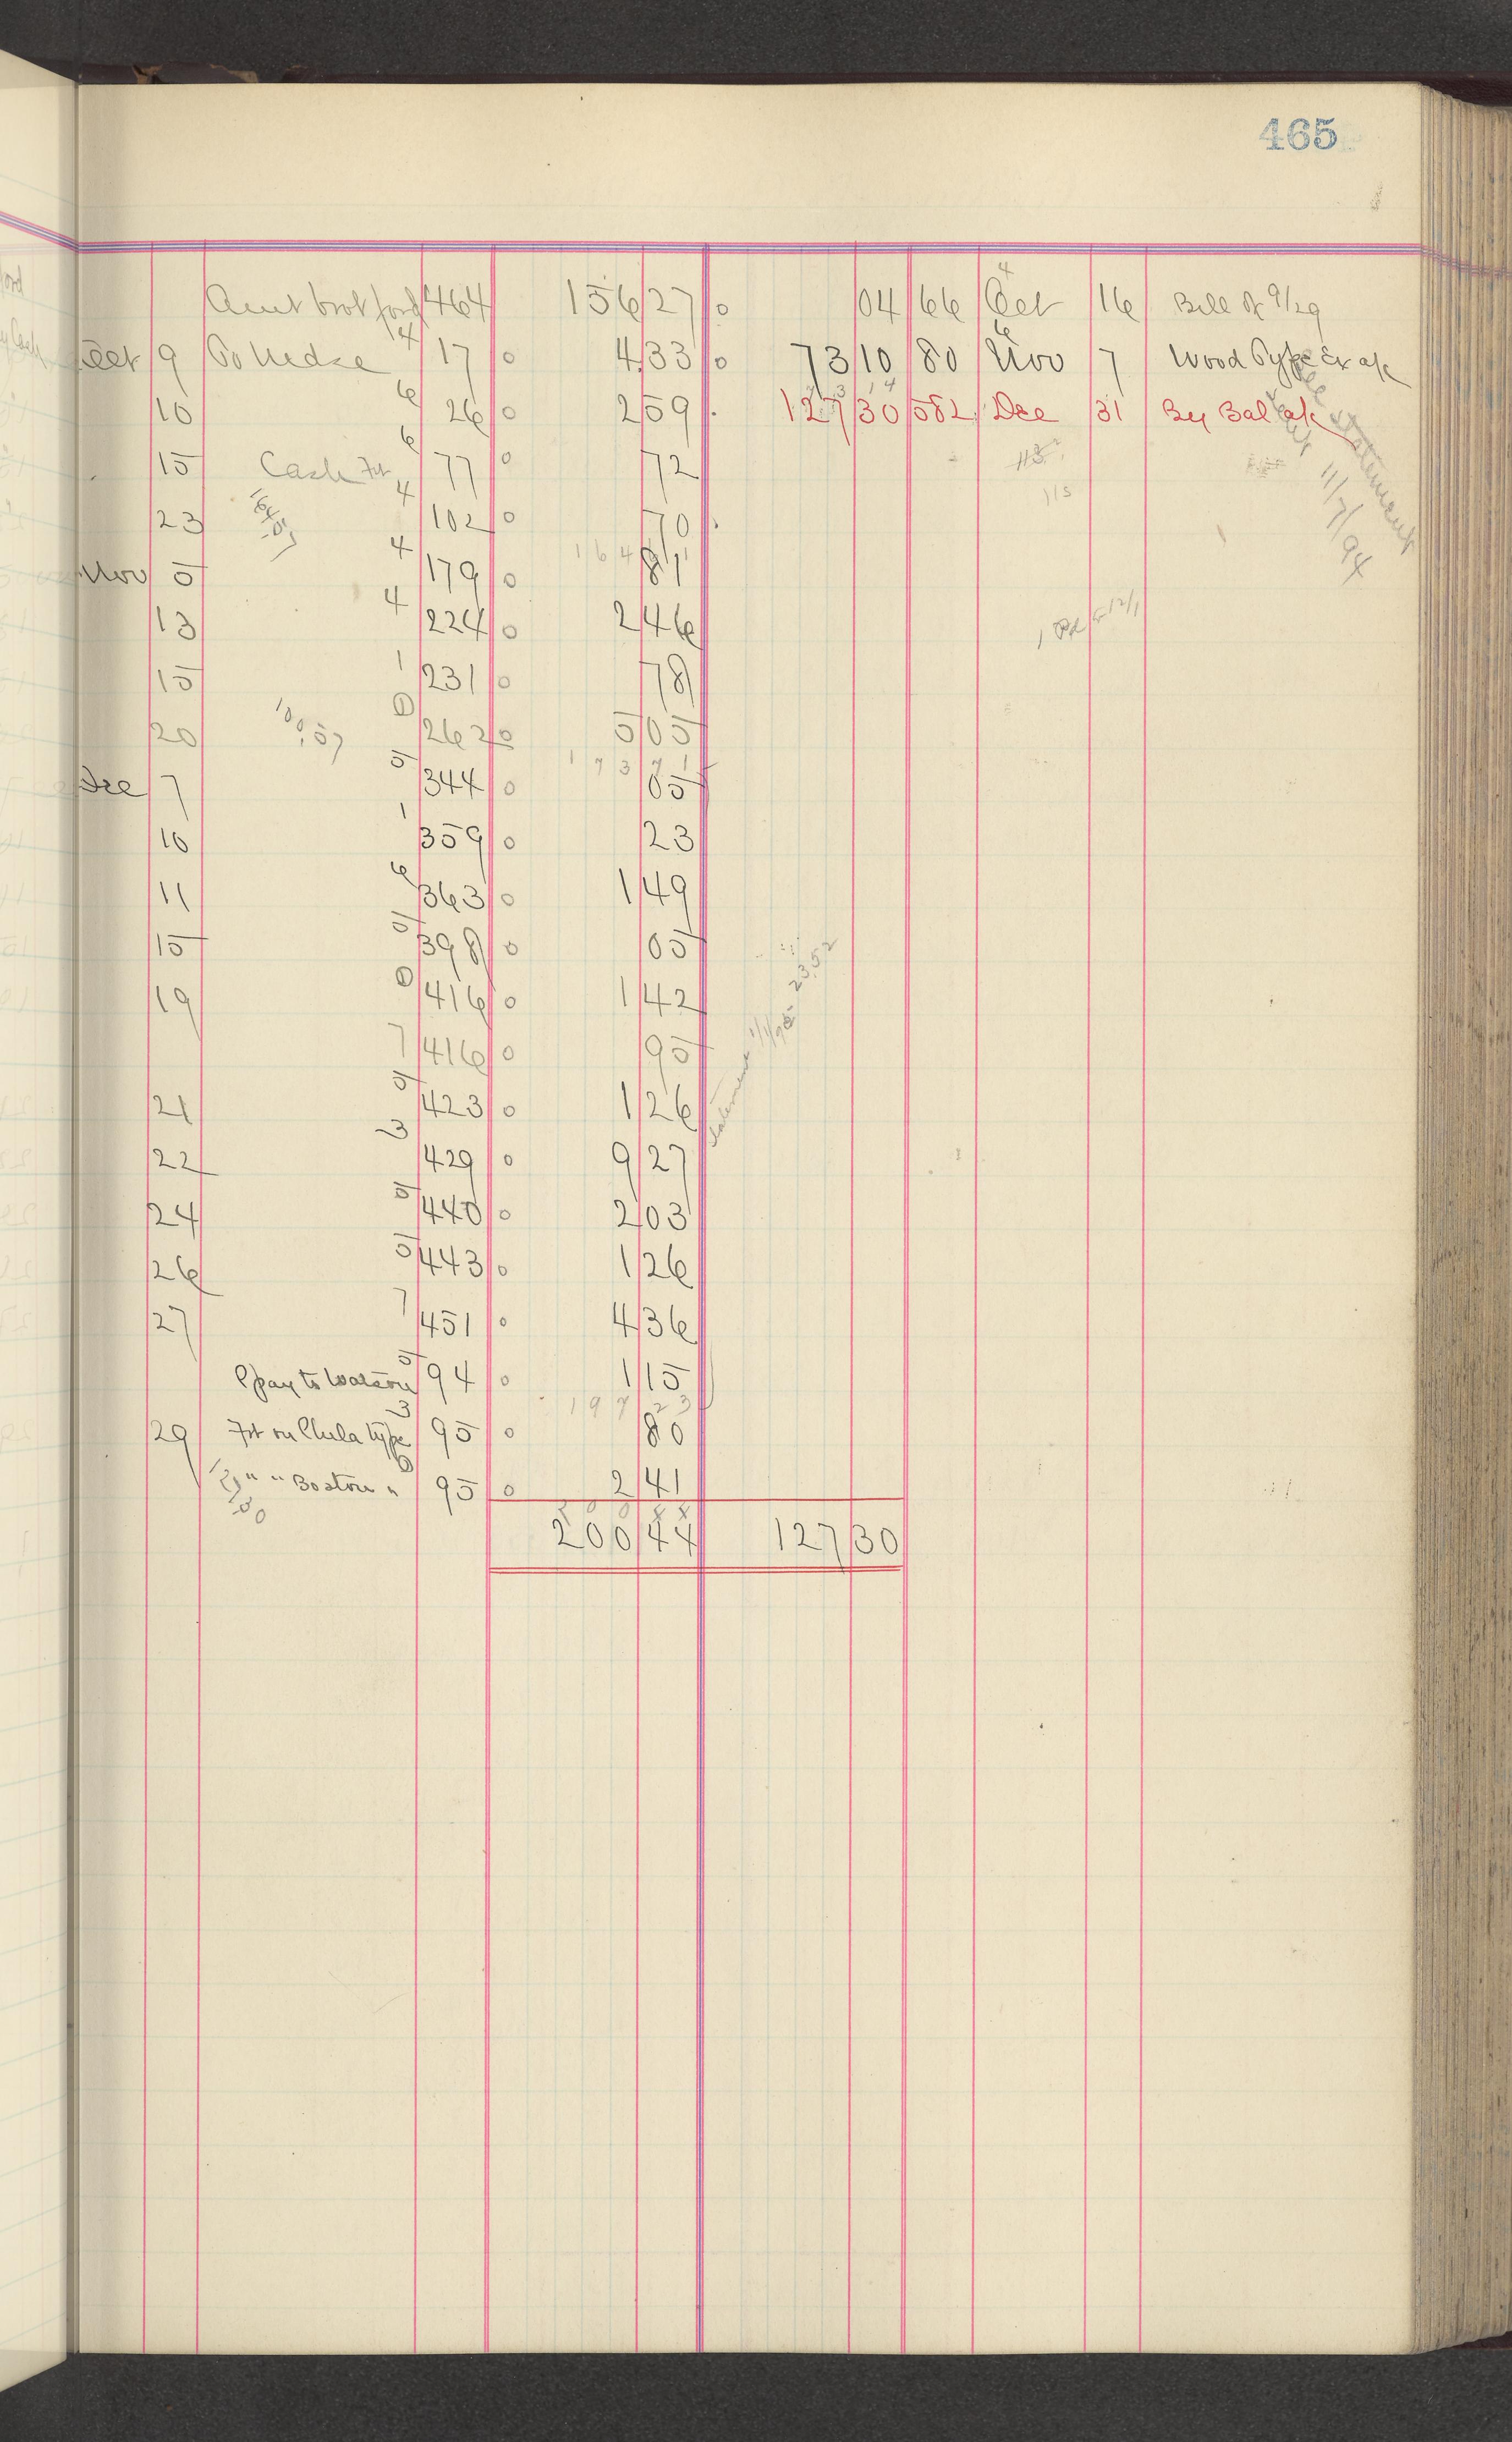 465
Amt brot ford 464 156 27 0 04 66 Oct 4 16 Bill of 9/29
Oct 9 To Mdse 4 17 0 4 33 0 73 10 80 Nov 6 7 Wood Type Ex a/c
10 6 26 0 2 59 127 30 582 Dec 31 By Bal a/c
15 Cash Frt 6 77 0 72
23 4 102 0 70
164
Nov 5 4 179 0 81
13 4 224 0 2 46
15 1 231 0 78
20 0 262 0 5 05
173 71
Dec 7 5 344 0 05
10 1 359 0 23
11 6 363 0 1 49
15 5 398 0 05
19 0 416 0 1 42
7 416 0 95
21 5 423 0 1 26
22 3 429 0 9 27
24 5 440 0 2 03
26 5 443 0 1 26
27 7 451 0 4 36
5 94 0 1 15
197 23
29 Frt on Chula type 3 95 0 80
" " Boston " 95 0 2 41
200 44 127 30
statement 11/7/94
115
12/1
Statement 23.52